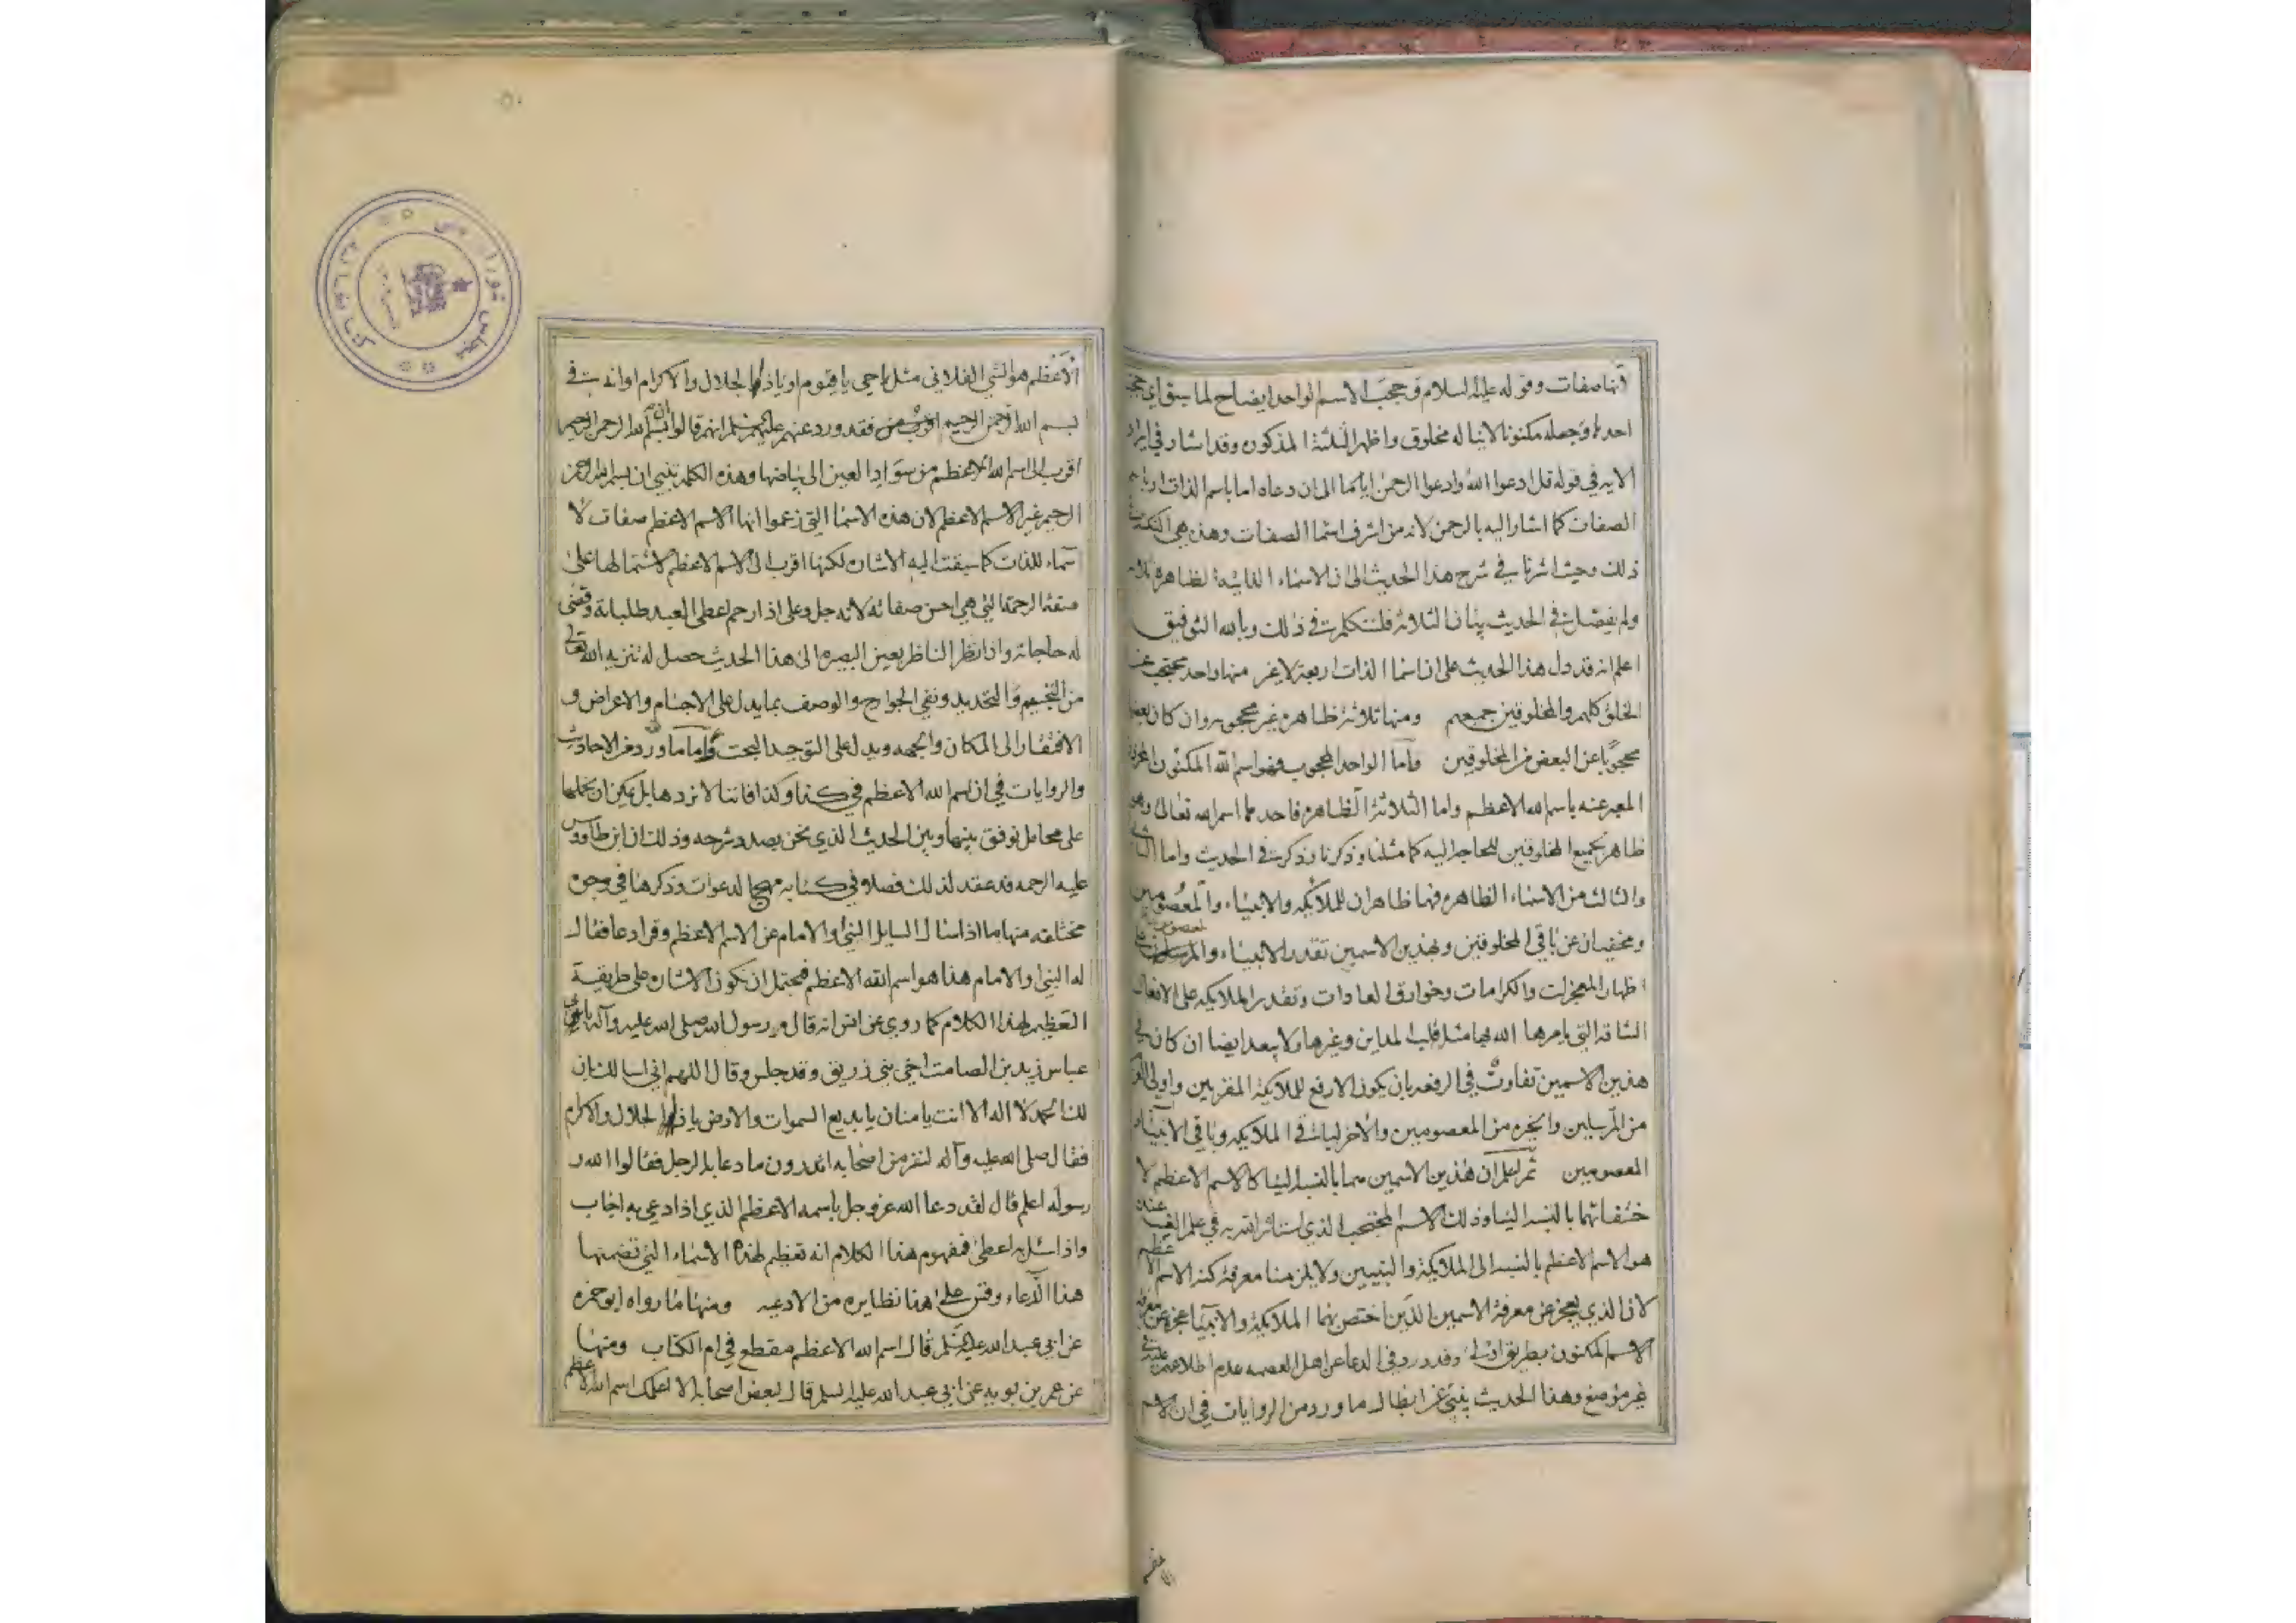 أنها صفات وقوله عليه السلام وحجب الاسم الواحد ايضاح لما سبق اي حجب
احدها وجعله مكنونا لا يناله مخلوق واظهر الثلثة المذكوره وقد اشار في ايراد
الايه في قوله قل ادعوا الله وادعوا الرحمن ايا ما الى ان دعاه اما باسم الذات او باسم
الصفات كما اشار اليه بالرحمن لانه من اشرف اسما الصفات وهذه هي النكته في
ذلك وحيث اشرنا في شرح هذا الحديث الى ان الاسماء الظاهرة ثلاثه
ولم يفصل في الحديث بيان الثلاثة فلنتكلم في ذلك وبالله التوفيق
اعلم انه قد دل هذا الحديث على ان اسما الذات اربعة لا غير منها واحد محتجب عن
الخلق كلهم والمخلوقين جمعهم ومنها ثلاثة ظاهره غير محجوبه وان كان بعضها
محجوبا عن البعض من المخلوقين وأما الواحد المحجوب فهو اسم الله المكنون المخزون
المعبر عنه باسم الله الاعظم واما الثلاثة الظاهره فاحدها اسم الله تعالى وهو
ظاهر لجميع المخلوقين للحاجه اليه كما مثلنا وذكرنا وذكر في الحديث واما الثاني
والثالث من الاسماء الظاهره فهما ظاهران للملائكه والانبياء والمعصومين
ومخفيان عن باقي المخلوقين وبهذين الاسمين تقدر الانبياء والمرسلين على
اظهار المعجزات والكرامات وخوارق العادات وتقدر الملائكه على الافعال
الشاقه التي يامرها الله بها مثل قلب المداين وغيرها ولا يبعد ايضا ان كان في
هذين الاسمين تفاوت في الرفعه بان يكون الارفع للملائكة المقربين واولي العزم
من المرسلين وغيره من المعصومين والاخر لباقي الملائكه وباقي الانبياء
المعصومين ثم اعلم ان هذين الاسمين هما بالنسبه الينا كالاسم الاعظم لا
ختفائهما بالنسبه الينا وذلك الاسم المحتجب الذي استاثر الله به في علم الغيب عنده
هو الاسم الاعظم بالنسبه الى الملائكة والنبيين ولا يلزمنا معرفة كنه الاسم الاعظم
لان الذي يعجز عن معرفة الاسمين الذين اختص بهما الملائكة والانبيا عجزه عن معرفة
الاسم المكنون بطريق اولى وقد ورد في الدعا عن اهل العصمه عدم اطلاعهم عليه في
غير موضع وهذا الحديث ينبئ عن ابطال ما ورد من الروايات في ان الاسم
الاعظم
الأعظم هو الشي الفلاني مثل يا حي يا قيوم او يا ذا الجلال والاكرام او انه في
بسم الله الرحمن الرحيم فقد ورد عنهم عليهم السلم انهم قالوا ان بسم الله الرحمن الرحيم
اقرب الى اسم الله الاعظم من سواد العين الى بياضها وهذه الكلمه تنبي ان بسم الله الرحمن
الرحيم غير الاسم الاعظم لان هذه الاسما التي زعموا انها الاسم الاعظم صفات لا
اسماء للذات كما سبقت اليه الاشاره لكنها اقرب الى الاسم الاعظم لاشتمالها على
صفة الرحمة التي هي احسن صفاته لانه جل وعلى اذا رحم اعطى العبد طلباته وقضى
له حاجاته واذا نظر الناظر بعين البصيره الى هذا الحديث حصل له تنزيه الله تعالى
من التجسيم والتحديد ونفي الجوارح والوصف بما يدل على الاجسام والاعراض و
الافتقار الى المكان والجهه ويدل على التوحيد البحت وأما ما ورد من الاحاديث
والروايات في ان اسم الله الاعظم في كذا وكذا فاننا لا نردها بل يمكن ان نحملها
على محامل توفق بينها وبين الحديث الذي نحن بصدد شرحه وذلك ان ابن طاووس
عليه الرحمه قد عقد لذلك فصلا في كتابه مهج الدعوات وذكرها في وجوه
مختلفه منها ما اذا سال السايل النبي او الامام عن الاسم الاعظم وقرا دعا فقال
له النبي او الامام هذا هو اسم الله الاعظم فيحتمل ان تكون الاشاره على طريقة
التعظيم لهذا الكلام كما روي عن انس انه قال مر رسول الله صلى الله عليه وآله بابي
عباس زيد بن الصامت اخي بني زريق وقد جلس وقال اللهم اني اسالك بان
لك الحمد لا اله الا انت يا منان يا بديع السموات والارض يا ذا الجلال والاكرام
فقال صلى الله عليه وآله لنفر من اصحابه اتدرون ما دعا به الرجل فقالوا الله و
رسوله اعلم قال لقد دعا الله عز وجل باسمه الاعظم الذي اذا دعي به اجاب
واذا سئل به اعطى فمفهوم هذا الكلام انه تعظيم لهذه الاسماء التي تضمنها
هذا الدعاء وقس على هذا نظايره من الادعيه ومنها ما رواه ابو حمزه
عن ابي عبد الله عليه السلم قال اسم الله الاعظم مقطع في ام الكتاب ومنها
عن عمر بن بويه عن ابي عبد الله عليه السلم قال لبعض اصحابه الا اعلمك اسم الله الاعظم
کتابخانه مجلس شورای ملی